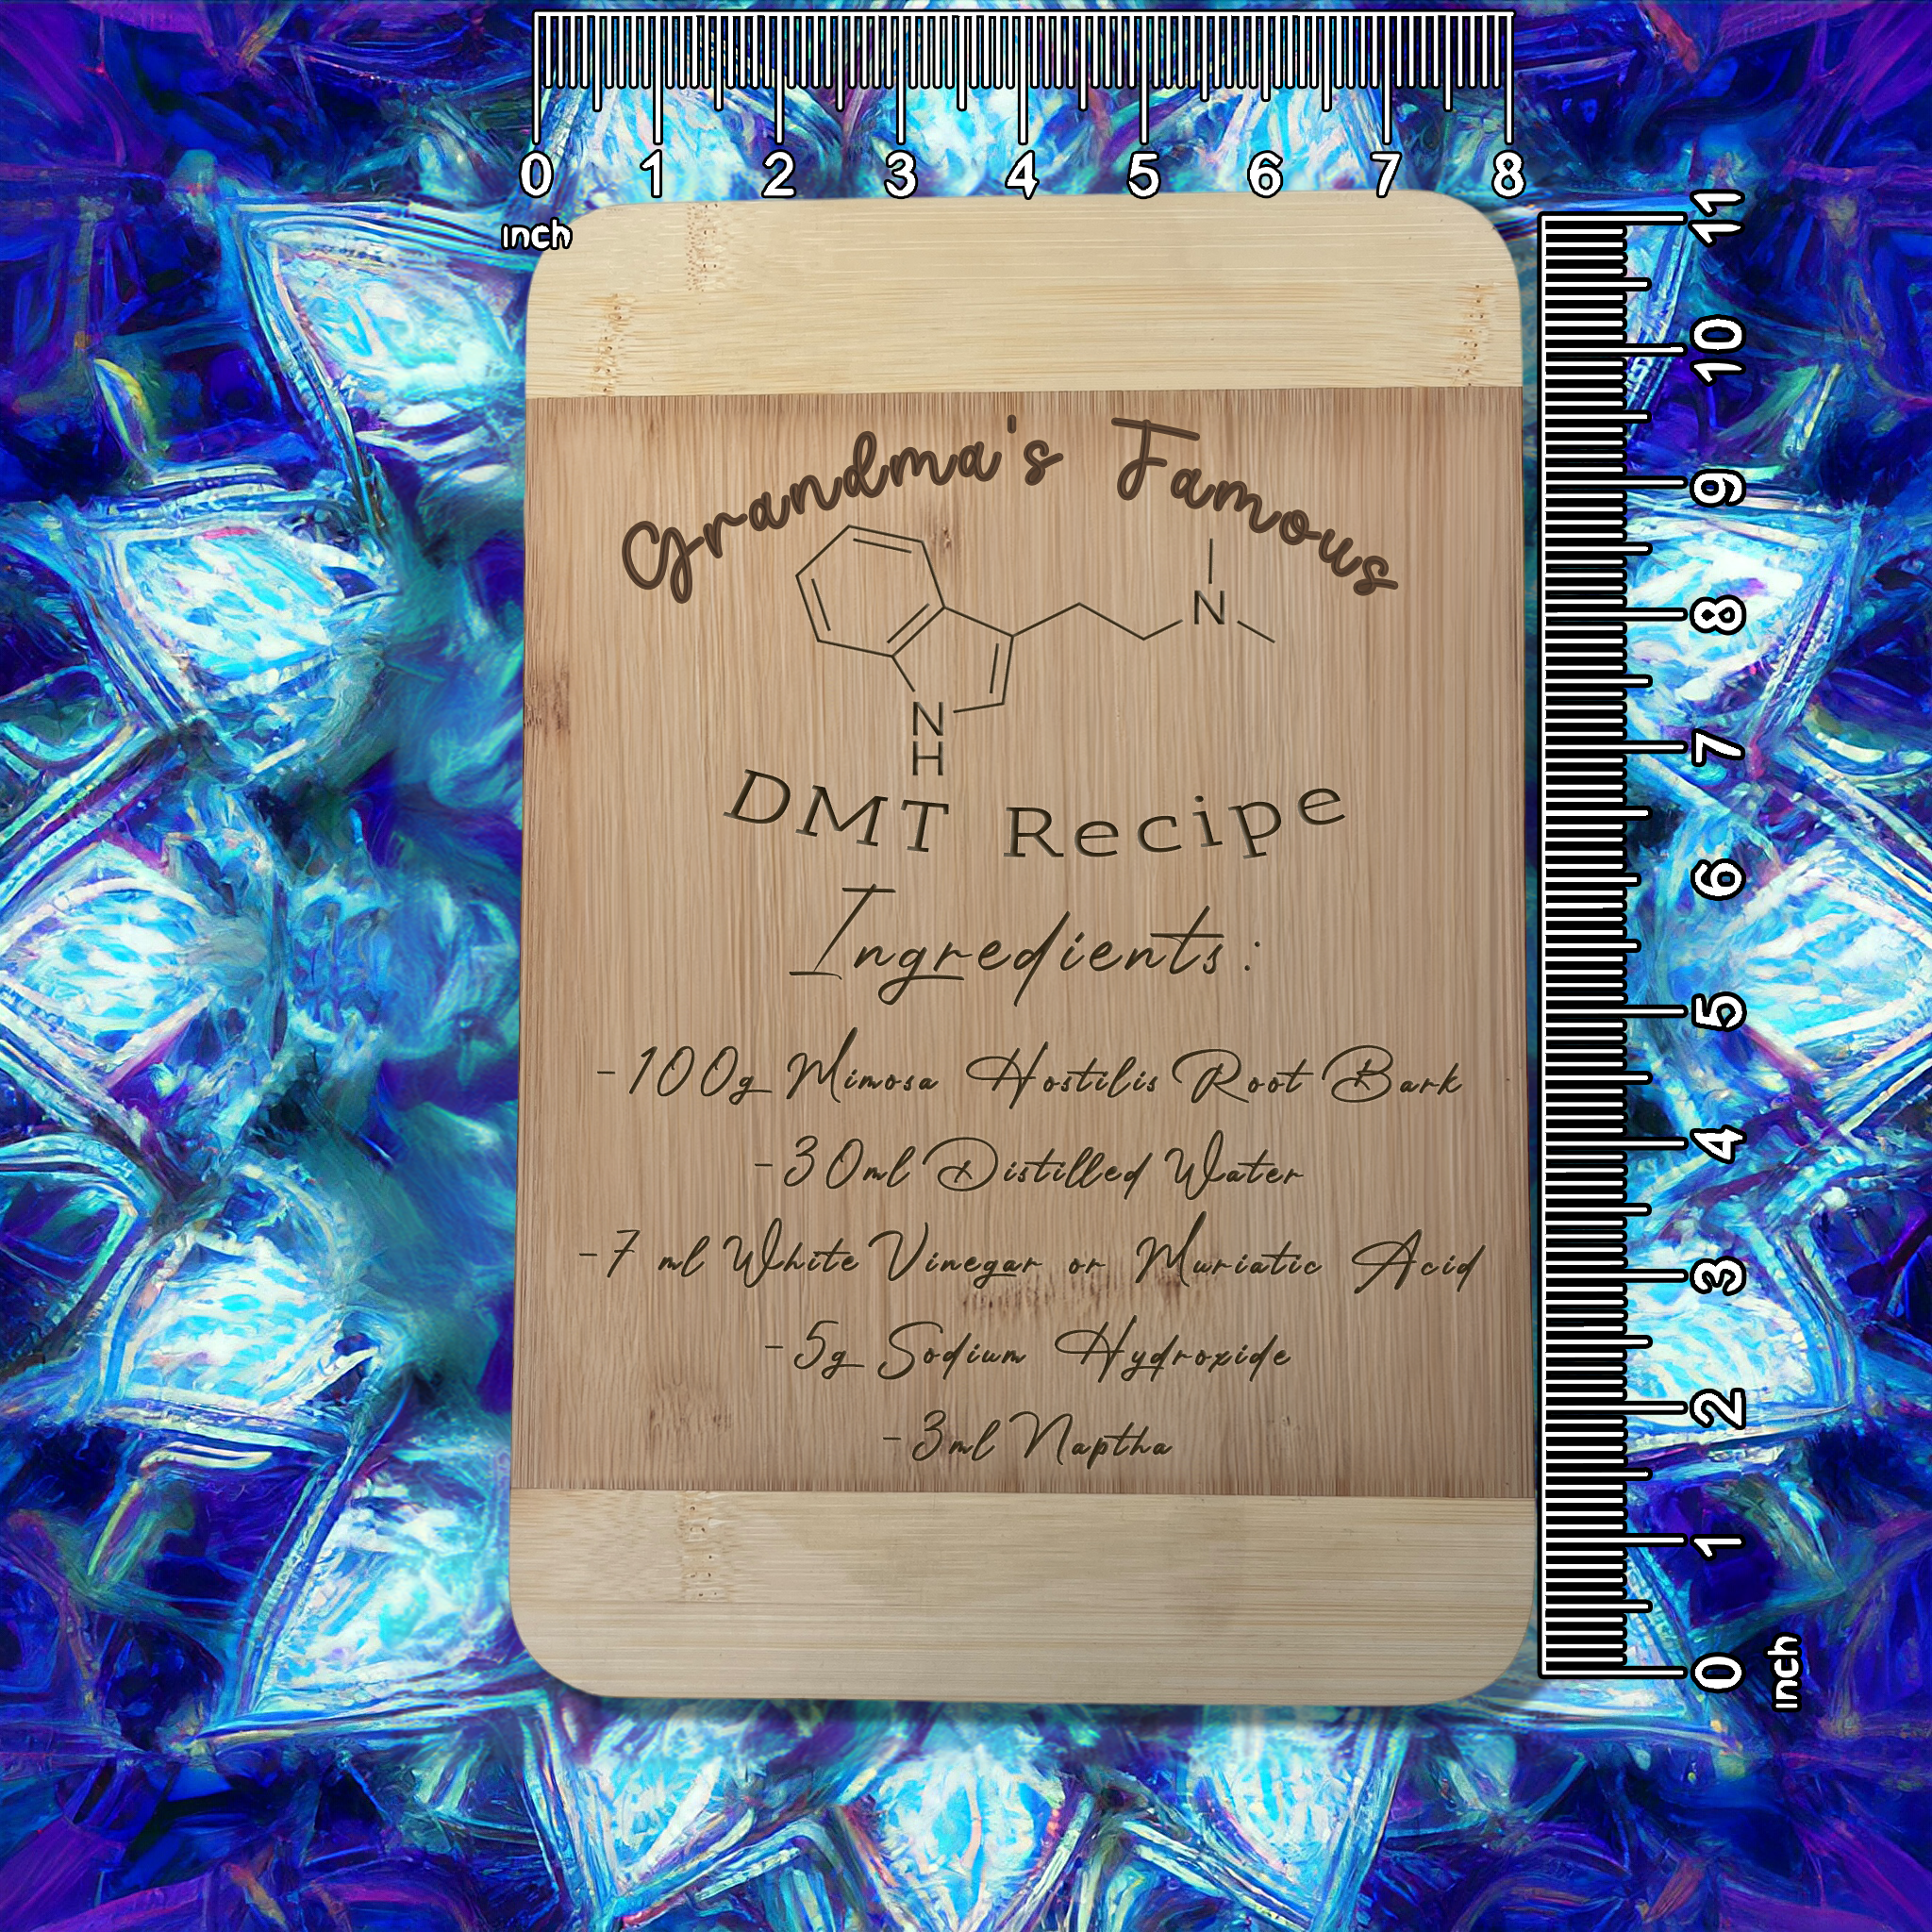 0 1 2 3 4 5 6 7 8
inch
Grandma's Famous
N
N
H
DMT Recipe
Ingredients:
-100g Mimosa Hostilis Root Bark
-30ml Distilled Water
-7 ml White Vinegar or Muriatic Acid
-5g Sodium Hydroxide
-3ml Naptha
11 10 9 8 7 6 5 4 3 2 1 0
inch